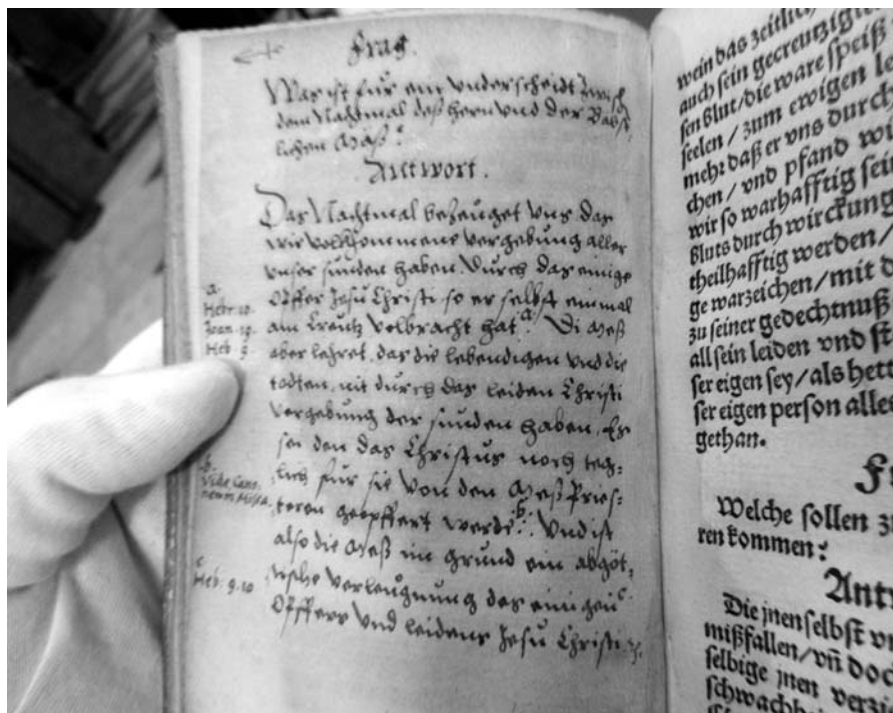 Frag.
Was ist für ein underscheidt zwisch
dem Nachtmal deß Hern und der Bäbst
lichen Mäß?
Antwort.
Das Nachtmal bezeuget uns das
wir volkhommene vergebung aller
unser sünden haben durch das einige
Opffer Jesu Christi so er selbst einmal
am Creutz volbracht hat. a Di Meß
aber lehret, das die lebendigen und die
todten, nit durch das leiden Christi
vergebung der sünden haben, Es
sei den das Christus noch teg=
lich für sie von den Meß Pries=
teren geopffert werde. b. Und ist
also die Meß im grund ein abgöt=
tische verleugnung des einigen c.
Opffers und leidens Jesu Christi
a.
Hebr. 10.
Joan. 19.
Heb. 9.
b.
Vide Cano
nem Missæ.
c
Heb. 9. 10
wein das zeitlich
auch sein gecreutzigt
sen Blut/die ware speiß
seelen/zum ewigen le
mehr daß er vns durch
chen/vnd pfand wi
wir so warhafftig sei
Bluts durch wirckung
theilhafftig werden/
ge warzeichen/mit d
zu seiner gedechtnuß
all sein leiden vnd
ser eigen sey/als hett
ser eigen person alles
gethan.
F
Welche sollen z
ren kommen?
Ant
Die jnen selbst v
mißfallen/vñ doc
selbige jnen verzi
schwachhe